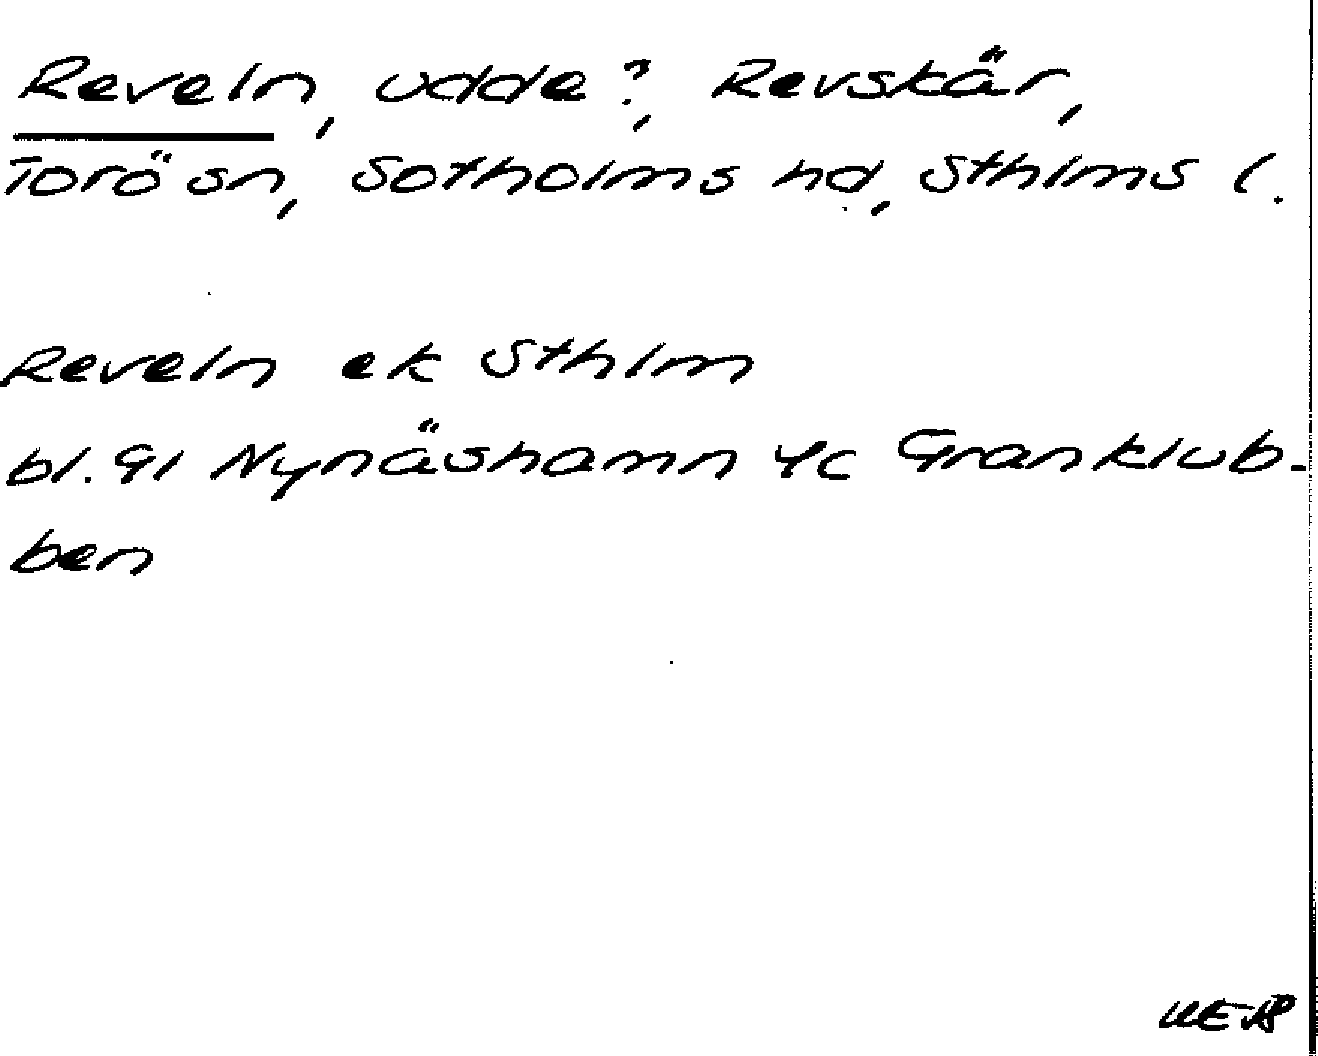 Reveln, udde?, Revskär,
Torö sn, Sotholms hd, Sthlms l.
Reveln ek Sthlm
bl. 91 Nynäshamn 4c Granklub-
ben